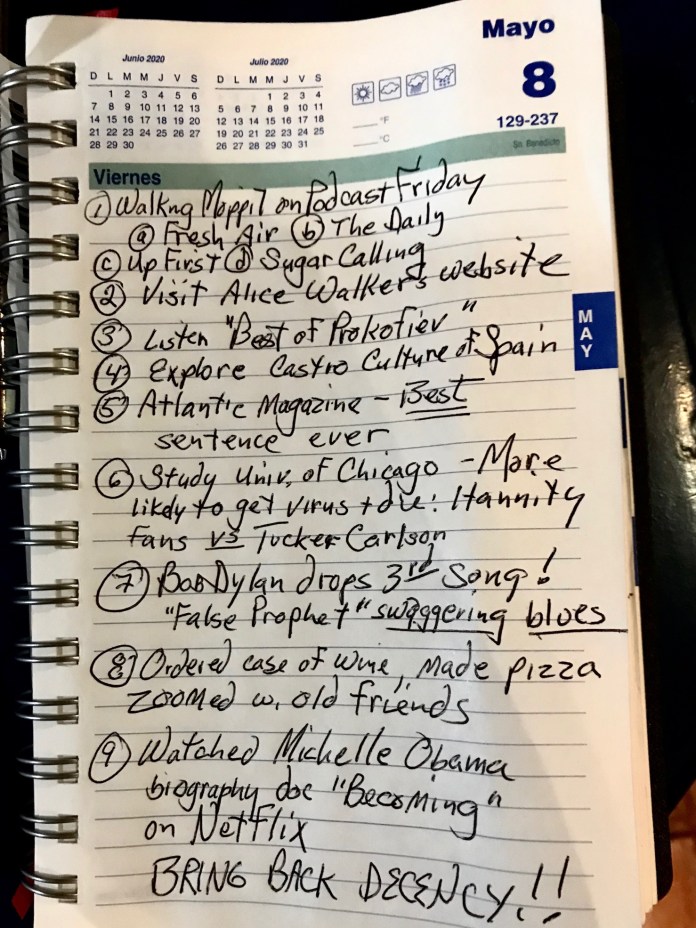 Mayo
8
129-237
Sn. Benedicto
Junio 2020
D L M M J V S
1 2 3 4 5 6
7 8 9 10 11 12 13
14 15 16 17 18 19 20
21 22 23 24 25 26 27
28 29 30
Julio 2020
D L M M J V S
1 2 3 4
5 6 7 8 9 10 11
12 13 14 15 16 17 18
19 20 21 22 23 24 25
26 27 28 29 30 31
°F
°C
Viernes
① Walkng on Podcast Friday
ⓐ Fresh Air ⓑ The Daily
ⓒ Up First ⓓ Sugar Calling
② Visit Alice Walker's website
③ Listen "Best of Prokofiev"
④ Explore Castro Culture of Spain
⑤ Atlantic Magazine - Best
sentence ever
⑥ Study Univ. of Chicago - More
likely to get virus + die: Hannity
fans vs Tucker Carlson
⑦ Bob Dylan drops 3rd song!
"False Prophet" swaggering blues
⑧ Ordered case of wine, made pizza
Zoomed w. old friends
⑨ Watched Michelle Obama
biography doc "Becoming"
on Netflix
BRING BACK DECENCY!!
MAY